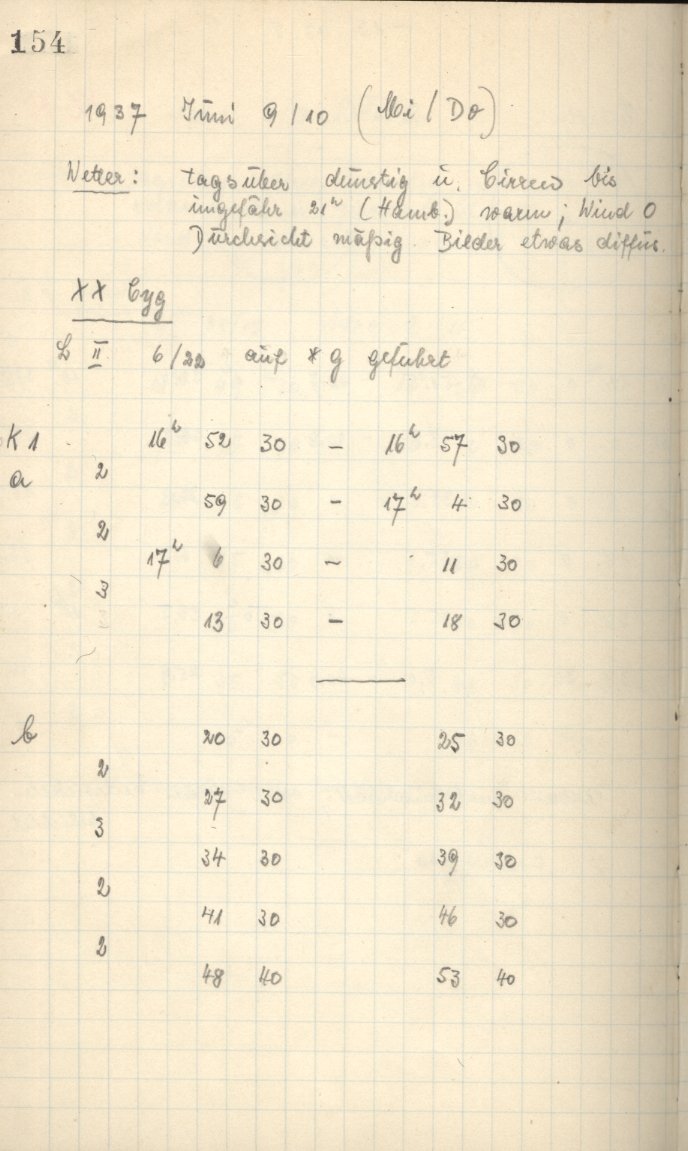 154
1937 Juni 9/10 (Mi/Do)
Wetter: tagsüber dunstig u. Cirren bis
ungefähr 21ʰ (Hamb.) warm; Wind O
Durchsicht mäßig. Bilder etwas diffus.
XX Cyg
L II 6/22 auf * g geführt
K 1 16ʰ 52 30 – 16ʰ 57 30
a 2
59 30 – 17ʰ 4 30
2
17ʰ 6 30 – 11 30
3
13 30 – 18 30
b 20 30 25 30
2
27 30 32 30
3
34 30 39 30
2
41 30 46 30
2
48 40 53 40